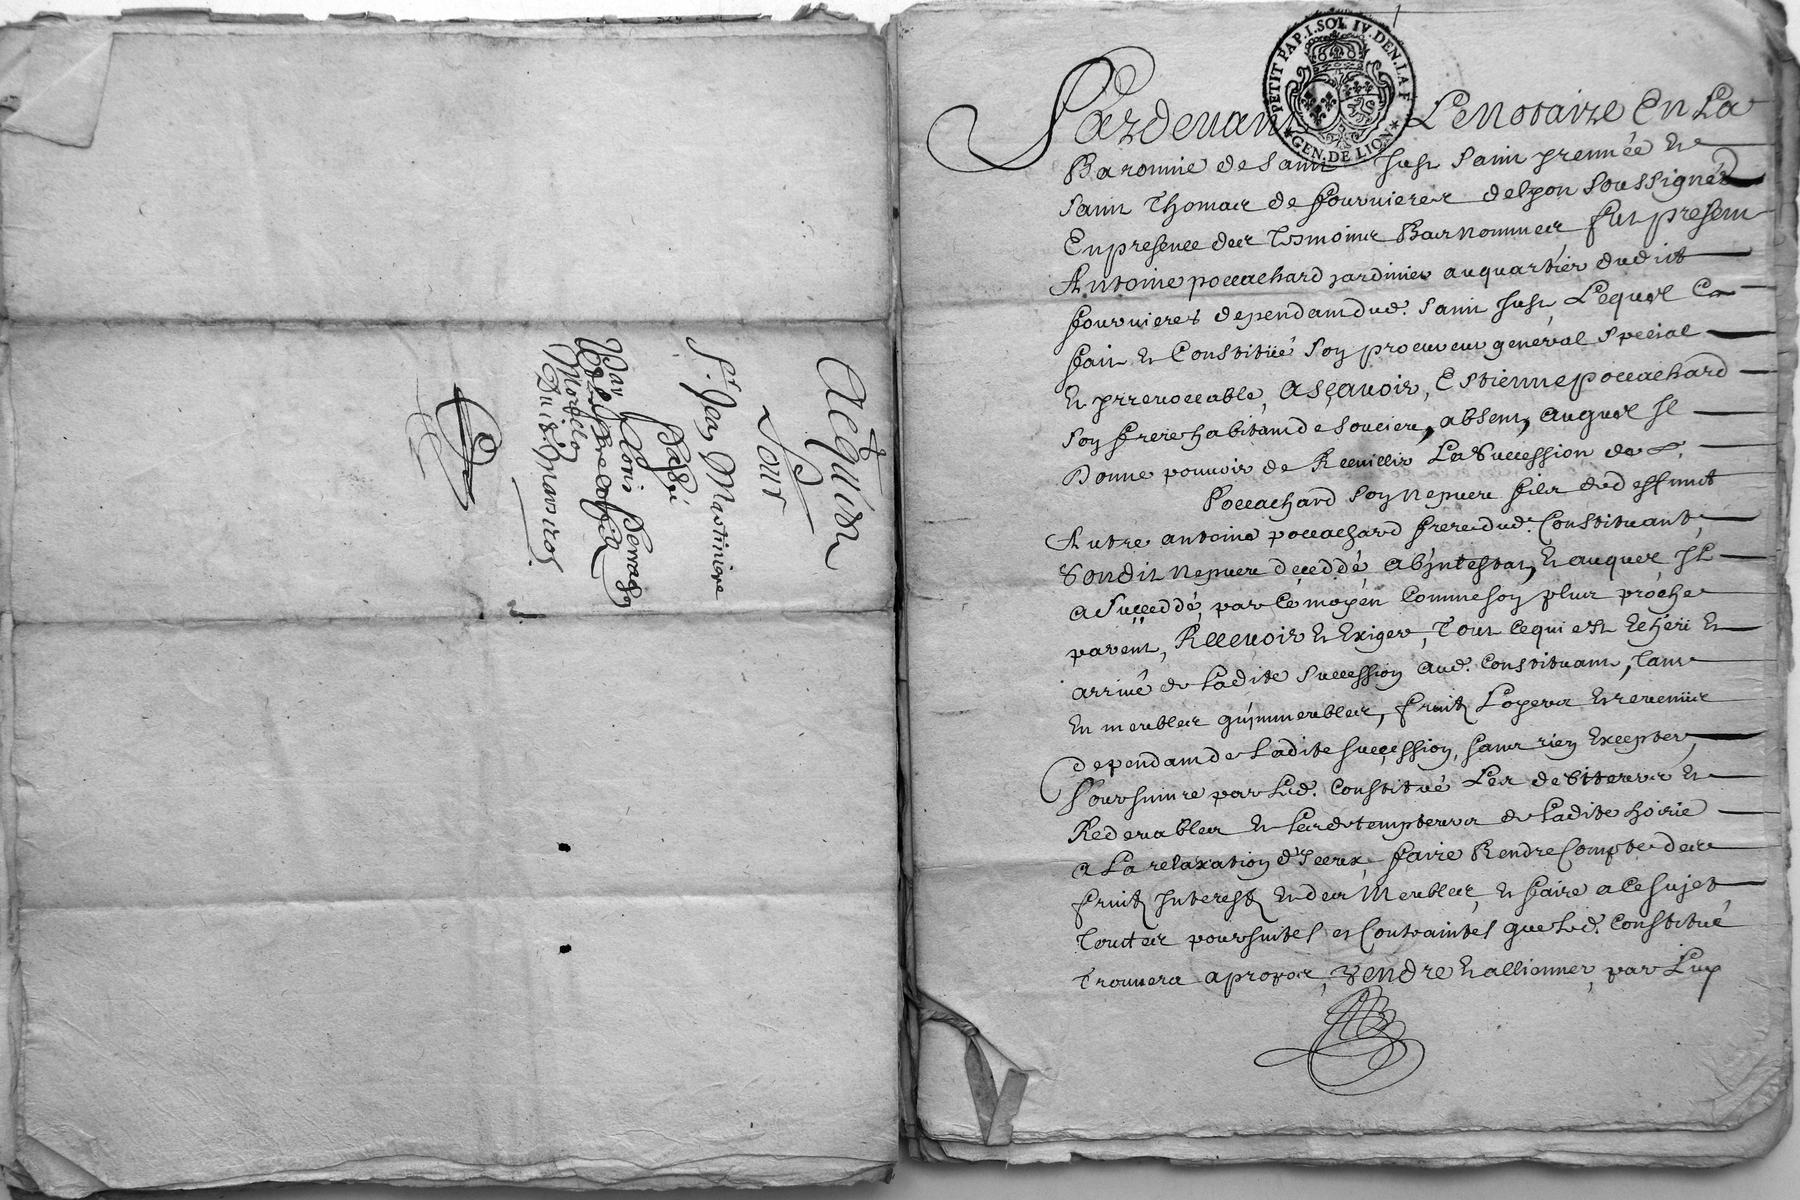 Acq.on
Pour
Sr. Jean Martinière
Passé
Par Louis
PETIT PAP. I. SOL. IV. DEN. LA F
GEN. DE LION
Pardevant Le Notaire En La
Baronnie de Saint Just Saint Irennée Et
Saint Thomas de fourvieres de Lyon Soussigné
En presence des Tesmoins Bas nommés fut present
Antoine pocachard jardinier au quartier dudit
fourvieres dependant dud. Saint Just, Lequel a
fait Et Constitüé Son procureur general Special
Et Irrevoccable, Asçavoir, Estienne pocachard
Son frere habitant de Soucieu, absent, auquel Il
Donne pouvoir de Recuillir La Succession de
Pocachard Son Nepveu fils de deffunct
Autre antoine pocachard frere dud. Constituant,
Sondit Nepveu deceddé abjntestat, Et auquel Il
a Succeddé, par Ce moyen Comme Son plus proche
parent, Recevoir Et Exiger, Tout Ce qui est Echeü Et
arrivé de Ladite Succession aud. Constituant, Tant
En meubles qu'jmmeubles, fruits Loyers Et revenüs
dependant de Ladite Succession, Sans rien Excepter,
Poursuivre par Led. Constitué Les debiteurs Et
Redevables Et Les detempteurs de Ladite hoirie
a La relaxation d'Iceux, faire Rendre Compte des
fruits Interests Et des Meubles, Et faire a Ce Sujet
Touttes poursuites et Contraintes que Led. Constitué
Trouvera apropos, Vendre Et allienner, par Luy